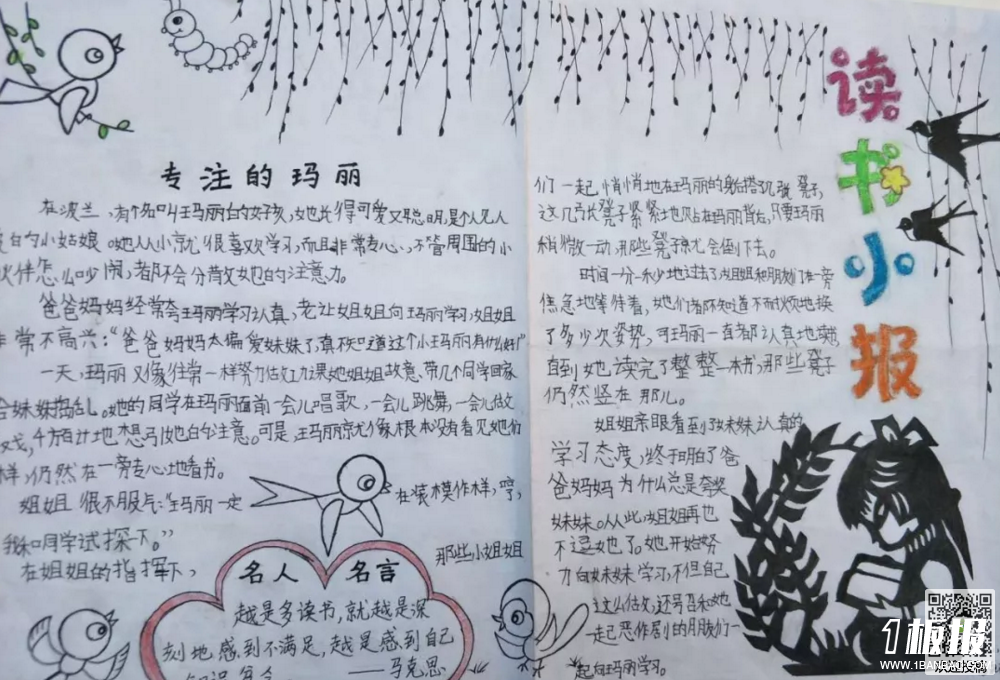 读书小报
专注的玛丽
在波兰，有个名叫玛丽的女孩，她长得可爱又聪明，是个人见人
爱的小姑娘。她从小就很喜欢学习，而且非常专心，不管周围的小
伙伴怎么吵闹，都不会分散她的注意力。
爸爸妈妈经常夸玛丽学习认真，老让姐姐向玛丽学习，姐姐
非常不高兴：“爸爸妈妈太偏爱妹妹了，真不知道这个小玛丽有什么好！”
一天，玛丽又像往常一样努力做功课，她姐姐故意带几个同学回家
给妹妹捣乱。她的同学在玛丽面前一会儿唱歌，一会儿跳舞，一会儿做
游戏，千方百计地想引她的注意。可是，玛丽就像根本没有看见她们
一样，仍然在一旁专心地看书。
姐姐很不服气：“玛丽一定在装模作样，哼，
我和同学试探下。”
在姐姐的指挥下，那些小姐姐
们一起悄悄地在玛丽的身后搭了几张凳子，
这几张凳子紧紧地贴在玛丽背后，只要玛丽
稍微一动，那些凳子就会倒下去。
时间一分一秒地过去了，姐姐和朋友们在一旁
焦急地等待着，她们都不知道不耐烦地换
了多少次姿势，可玛丽一直都认真地读，
直到她读完了整整一本书，那些凳子
仍然竖在那儿。
姐姐亲眼看到了妹妹认真的
学习态度，终于明白了爸
爸妈妈为什么总是夸奖
妹妹。从此，姐姐再也
不逗她了。她开始努
力向妹妹学习，不但自己
这么做，还号召和她
一起恶作剧的朋友们一
起向玛丽学习。
名人名言
越是多读书，就越是深
刻地感到不满足，越是感到自己
——马克思
1板报
WWW.1BANBAO.COM